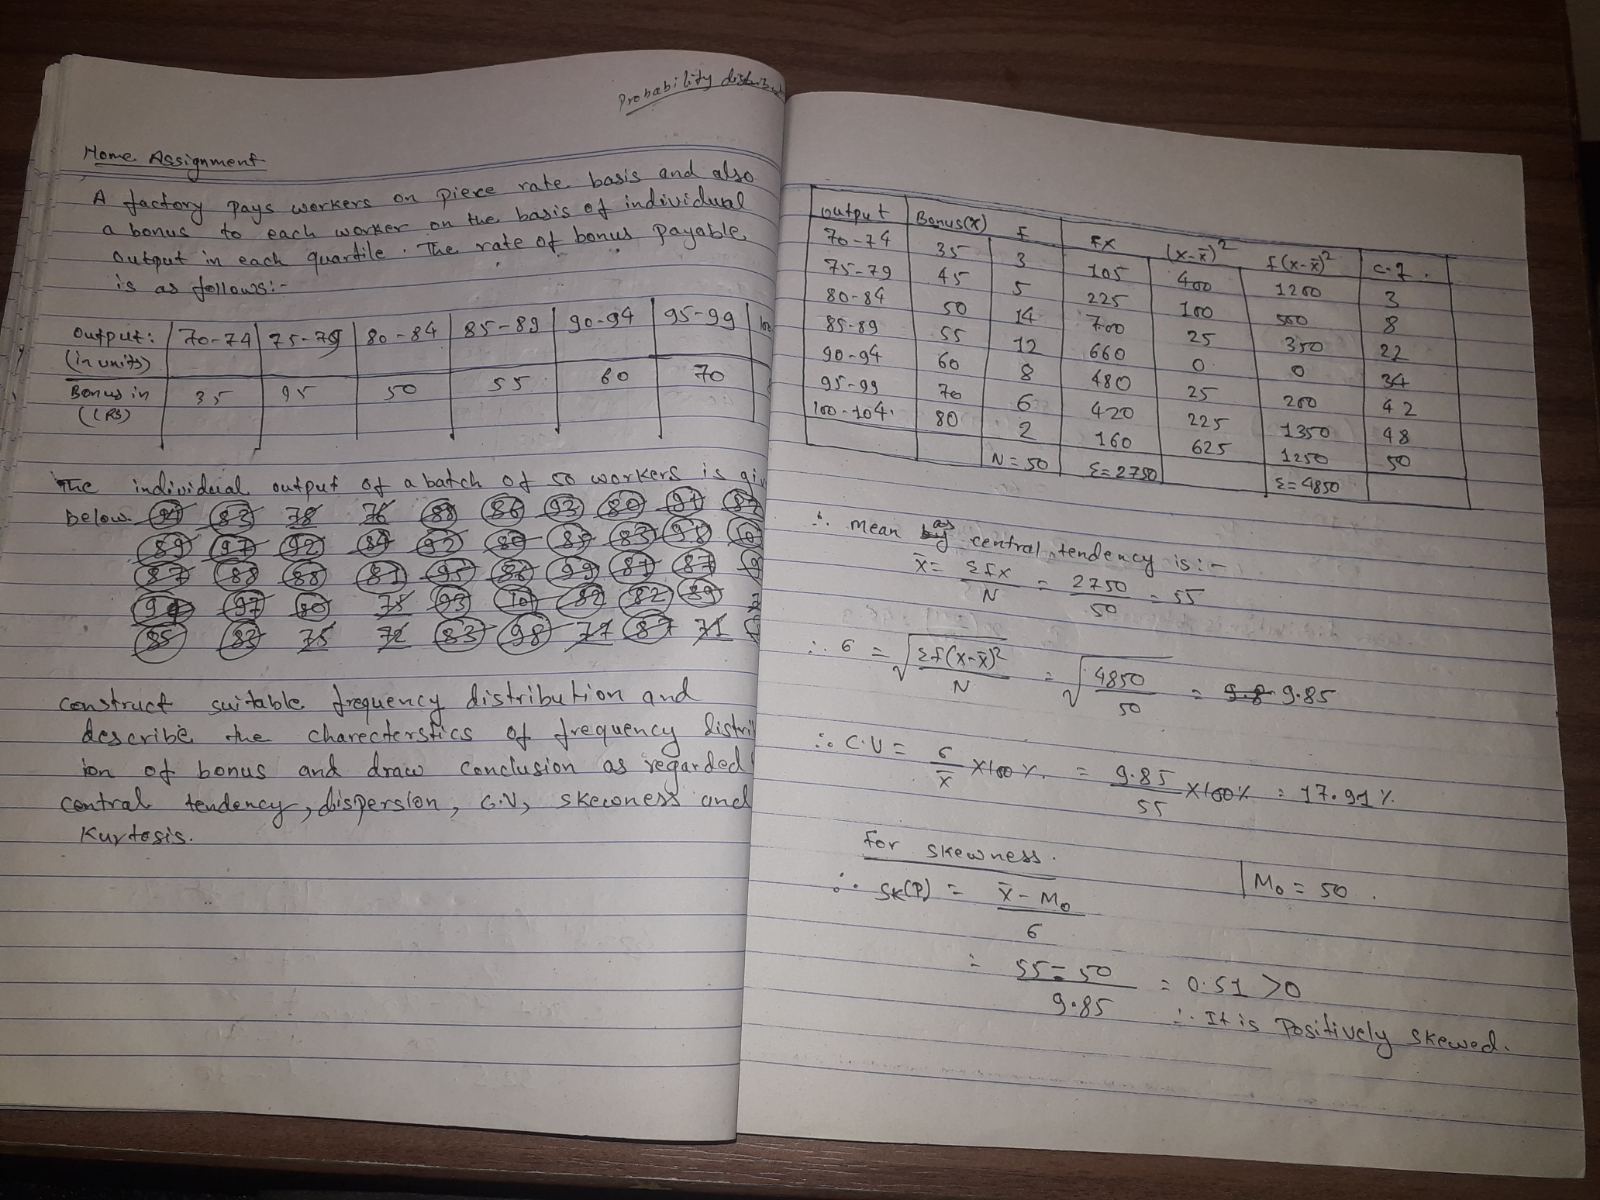 Probability distrib
Home Assignment
A factory pays workers on piece rate basis and also
a bonus to each worker on the basis of individual
output in each quartile. The rate of bonus payable
is as follows:-
output: 70-74 75-79 80-84 85-89 90-94 95-99
(in units)
Bonus in 35 45 50 55 60 70
(RS)
The individual output of a batch of 50 workers is gi
below 83 78 76 88 86 93 80 91 82
89 97 92 84 92 80 85 83 98
87 88 88 81 95 86 99 81 87
97 80 75 93 101 82 82 89
85 83 75 72 83 98 77 87 71
construct suitable frequency distribution and
describe the charecterstics of frequency distri
ion of bonus and draw conclusion as regarded
central tendency, dispersion, C.V, skewness and
Kurtosis.
output Bonus(x) f fx (x-x̄)² f(x-x̄)² c.f.
70-74 35 3 105 400 1200 3
75-79 45 5 225 100 500 8
80-84 50 14 700 25 350 22
85-89 55 12 660 0 0 34
90-94 60 8 480 25 200 42
95-99 70 6 420 225 1350 48
100-104 80 2 160 625 1250 50
N=50 Σ=2750 Σ=4850
∴ mean as central tendency is:-
x̄ = Σfx/N = 2750/50 = 55
∴ 6 = √Σf(x-x̄)²/N = √4850/50 = 9.8 9.85
∴ C.V = 6/x̄ X100%. = 9.85/55 X100% = 17.91%.
For skewness.
∴ SK(P) = x̄-Mo/6 Mo=50.
= 55-50/9.85 = 0.51 >0
∴ It is Positively skewed.